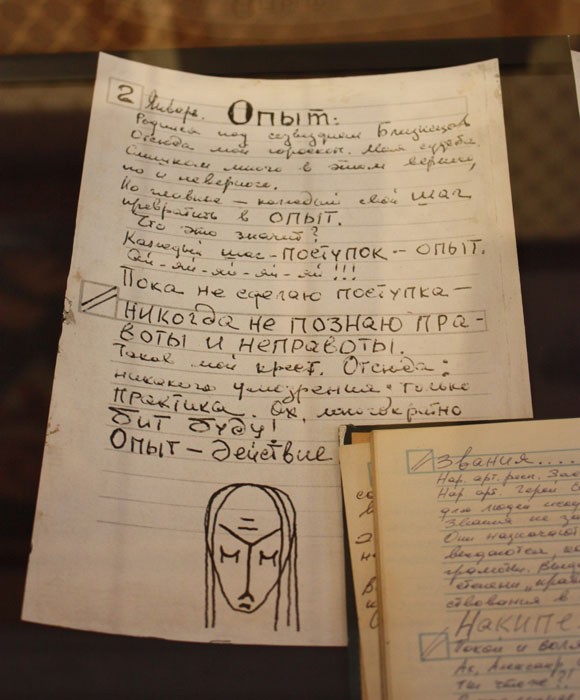 2 Января. Опыт:
Родился под созвездием Близнецов
Отсюда мой гороскоп. Моя судьба
Слишком много в этом верного,
но и неверного.
Но главное – каждый свой шаг
превратить в ОПЫТ.
Что это значит?
Каждый шаг – ПОСТУПОК – ОПЫТ.
Ай-яй-яй-яй-яй!!!
Пока не сделаю поступка –
никогда не познаю пра-
воты и неправоты.
Таков мой крест. Отсюда:
никакого умозрения. Только
практика. Ох, многократно
бит буду!
Опыт – действие
Звания....
Нар. арт. рип. Зас
Нар. арт. Герой С
для людей иску
Звания не за
Они назначают
выдаются, ка
грамоты. Выда
степени „прав
ствования в
Накипе
Токои и воля
Ах, Александр
ты также?..